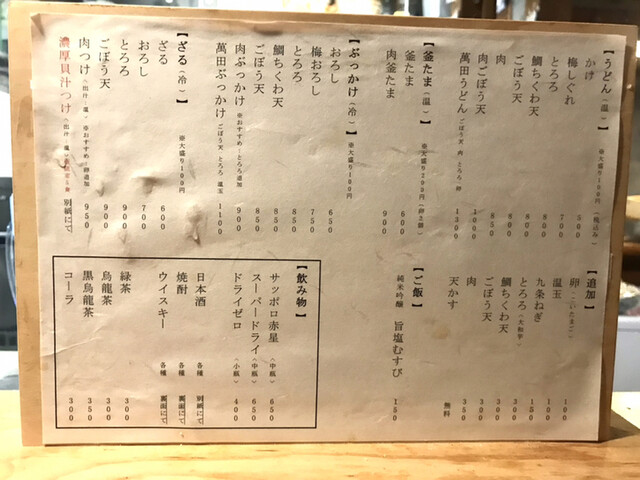 【うどん（温）】 ※大盛り100円（税込み）
かけ 500
梅しぐれ 700
とろろ 700
鯛ちくわ天 800
ごぼう天 800
肉 850
肉ごぼう天 1000
萬田うどん ごぼう天 肉 とろろ 卵 1300
【釜たま（温）】 ※大盛り200円（卵2個）
釜たま 600
肉釜たま 900
【ぶっかけ（冷）】 ※大盛り100円
おろし 650
梅おろし 750
とろろ 750
鯛ちくわ天 850
ごぼう天 850
肉ぶっかけ ※おすすめ:とろろ追加 900
萬田ぶっかけ ごぼう天 とろろ 温玉 1100
【ざる（冷）】 ※大盛り100円
ざる 600
おろし 700
とろろ 700
ごぼう天 900
肉つけ（出汁:温）※おすすめ:卵追加 950
濃厚貝汁つけ（出汁:温） 別紙にて
【追加】
卵（こいたまご） 100
温玉 100
九条ねぎ 100
とろろ（大和芋） 150
鯛ちくわ天 300
ごぼう天 300
肉 350
天かす 無料
【ご飯】
純米吟醸 旨塩むすび 150
【飲み物】
サッポロ赤星（中瓶） 650
スーパードライ（中瓶） 650
ドライゼロ（小瓶） 400
日本酒 各種 別紙にて
焼酎 各種 裏面にて
ウイスキー 各種 裏面にて
緑茶 300
烏龍茶 300
黒烏龍茶 350
コーラ 300